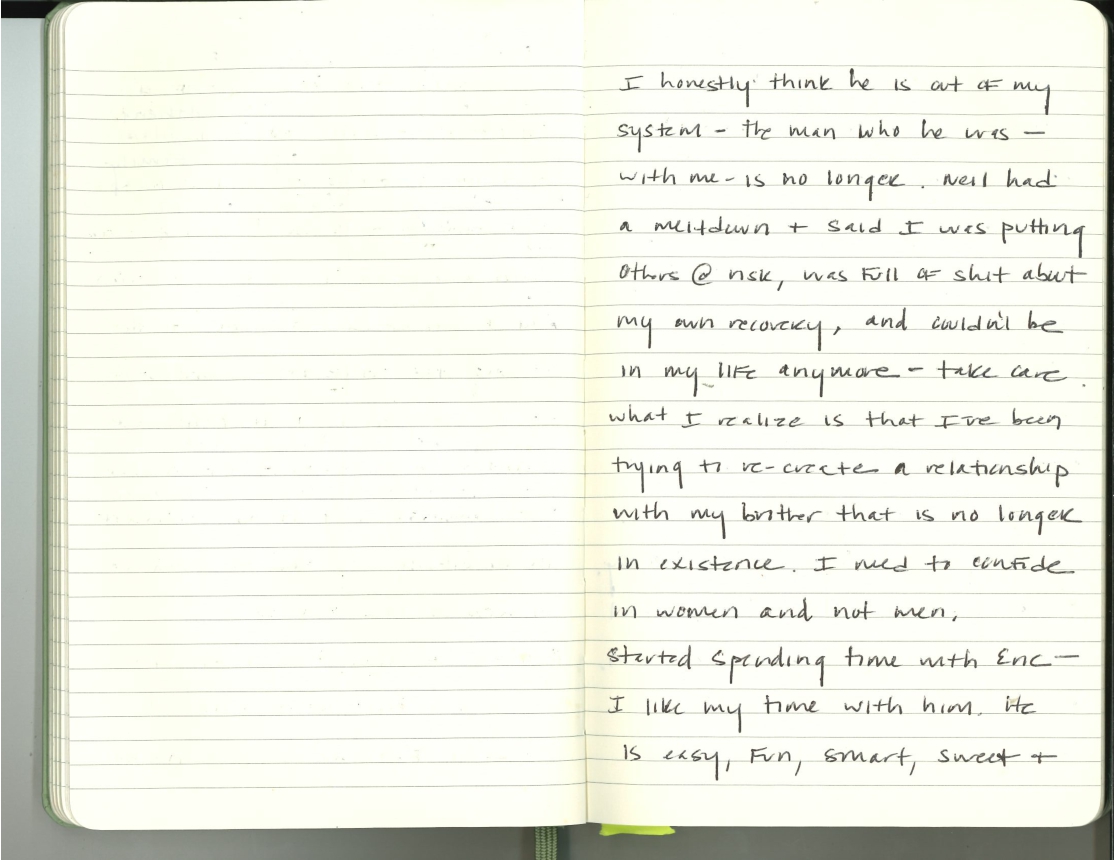 I honestly think he is out of my
system - the man who he was -
with me - is no longer. Neil had
a meltdown + said I was putting
others @ risk, was full of shit about
my own recovery, and couldn't be
in my life anymore - take care.
what I realize is that I've been
trying to re-create a relationship
with my brother that is no longer
in existence. I need to confide
in women and not men.
started spending time with Eric -
I like my time with him. He
is easy, fun, smart, sweet +